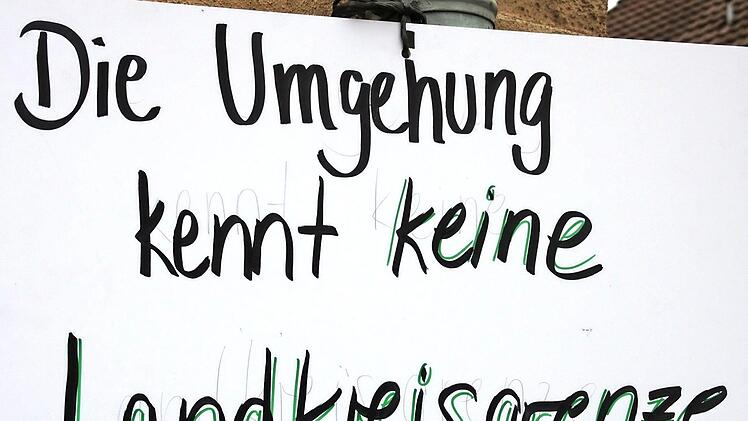 Die Umgehung
kennt keine
Landkreisgrenze